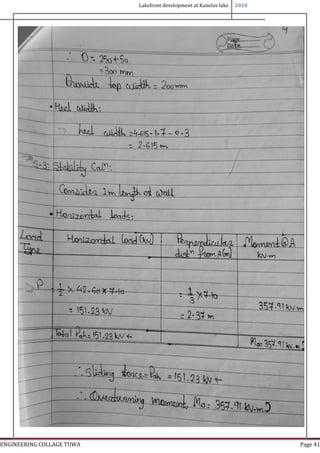 Lakefront development at Kanelav lake 2018
4
Page
Date
∴ D = 250+50
= 300 mm
Provide top width = 200mm
• Heel width:
→ heel width = 4.615 - 1.7 - 0.3
= 2.615 m
S-3: Stability Calⁿ:
Consider 1m length of wall
• Horizontal loads:
Load Type Horizontal load (kN) Perpendicular distⁿ from A(m) Moment @ A kN.m
→ P = 1/2 × 42.60 × 7.10 = 1/3 × 7.10
= 151.23 kN = 2.37 m 357.91 kN.m
Total Pah = 151.23 kN ← Mo = 357.91 kN.m
∴ Sliding force = Pah = 151.23 kN ←
∴ Overturning moment, Mo = 357.91 kN.m
ENGINEERING COLLAGE TUWA Page 41